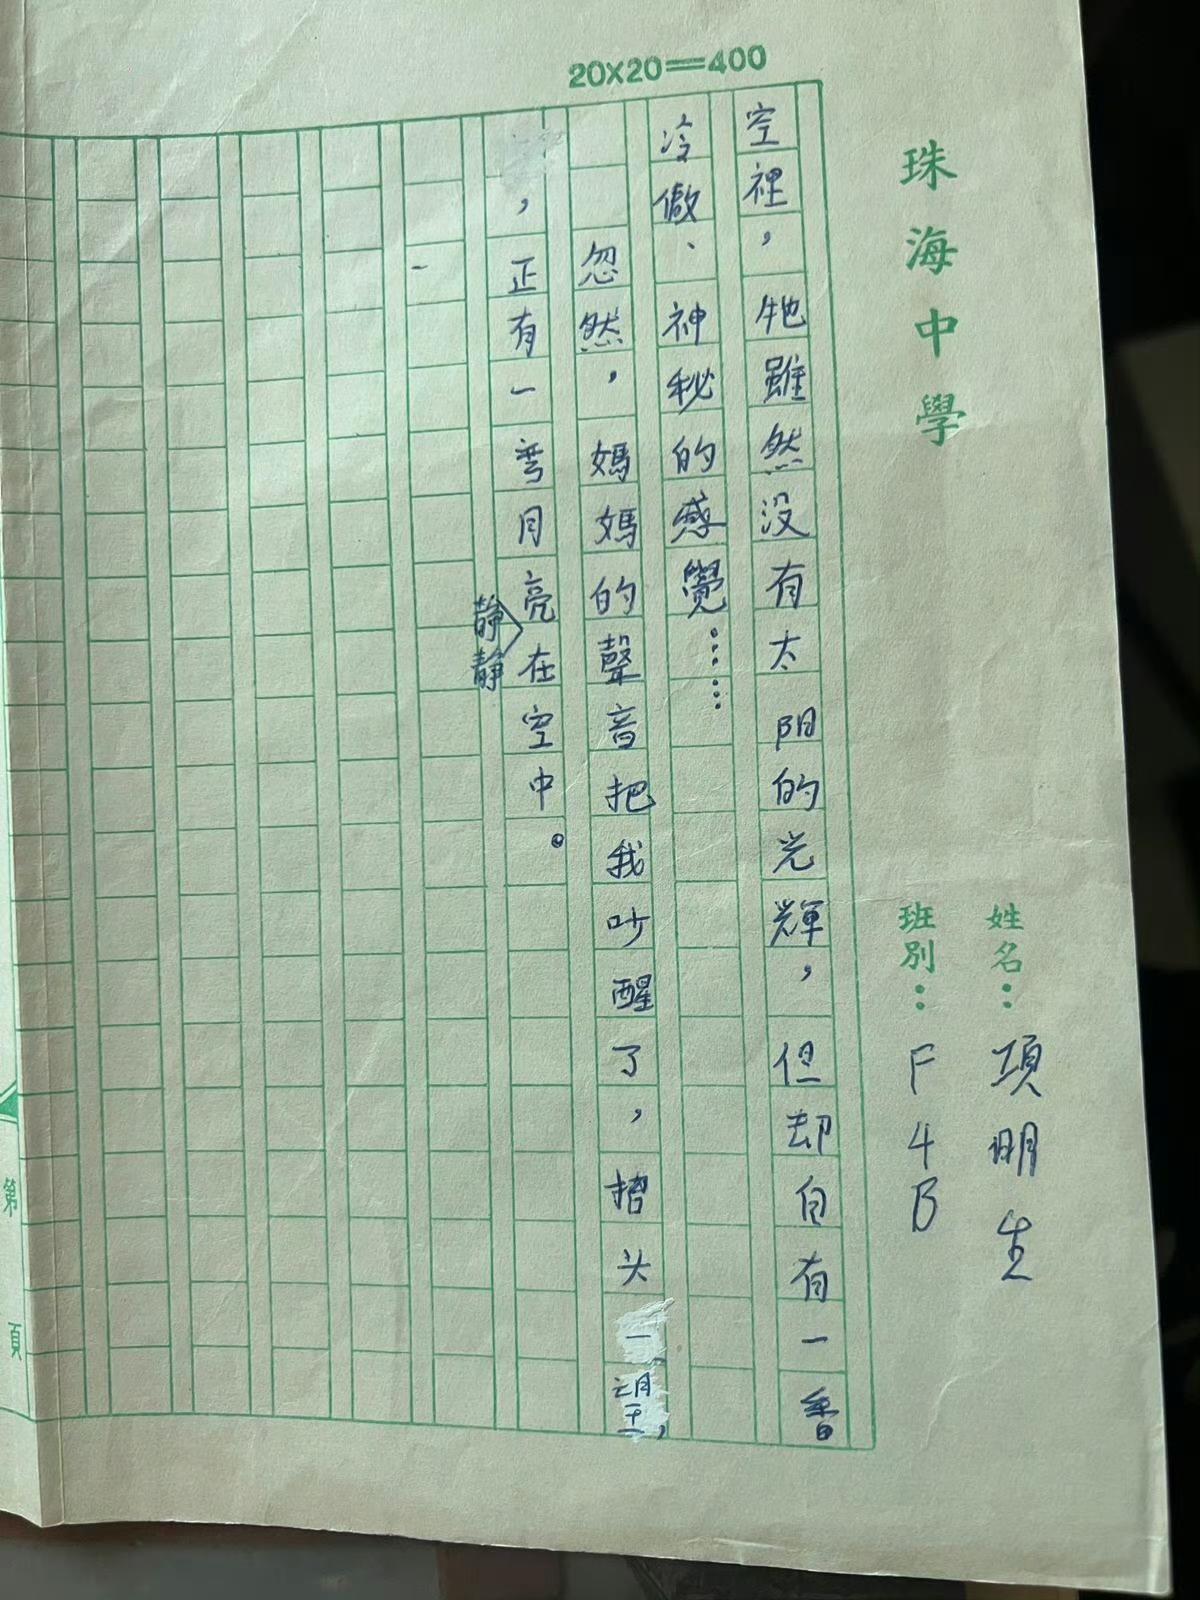 20×20=400
珠海中學
姓名：項明生
班別：F4B
空裡，牠雖然没有太阳的光輝，但却自有一番
冷傲、神秘的感覺……
忽然，媽媽的聲音把我吵醒了，抬头一望，
，正有一弯月亮静静在空中。
第 頁